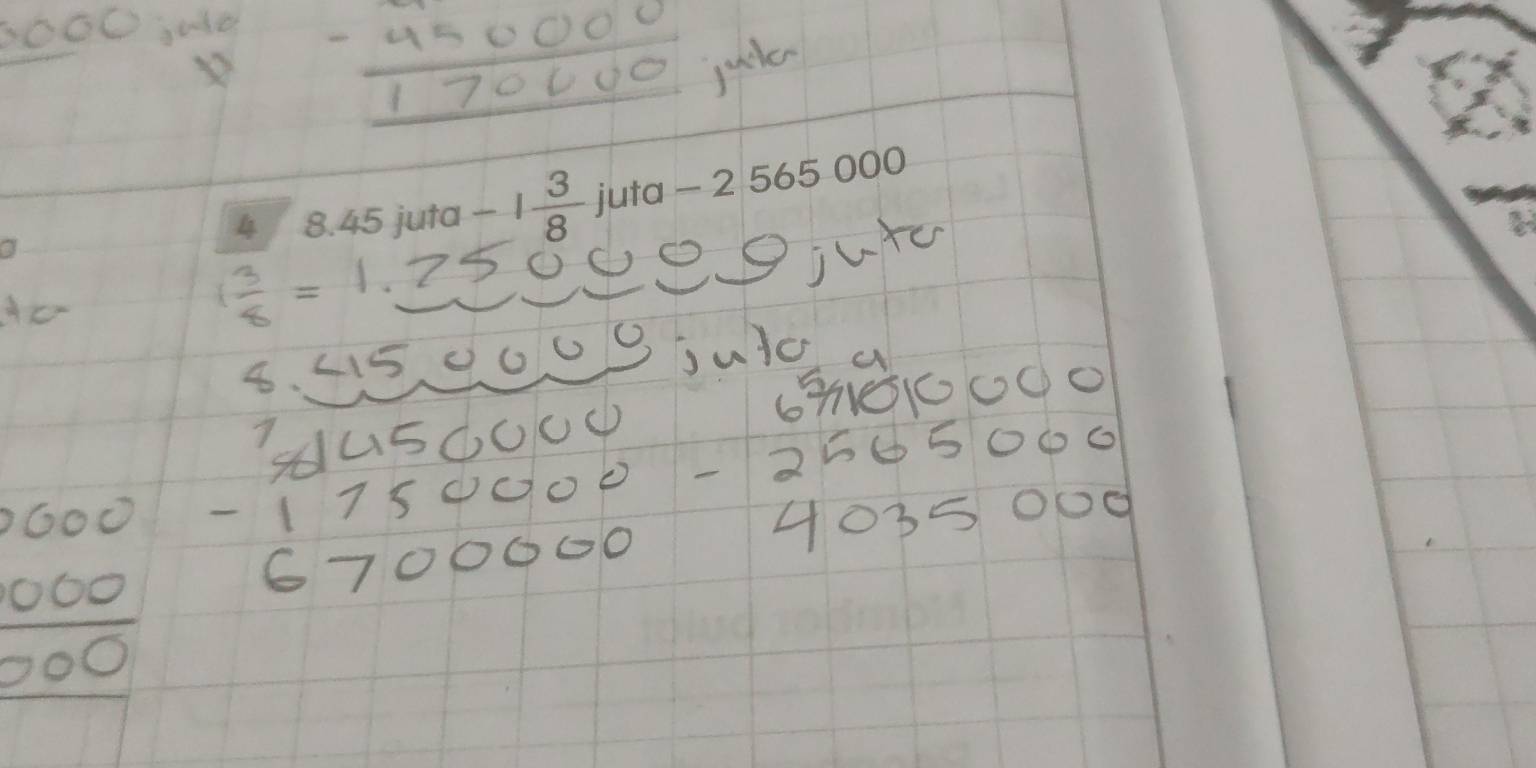 000 juta
- 450000
170000 juta
4 8.45 juta - 1 3/8 juta - 2 565 000
1 3/8 = 1.750000 juta
8.450000 juta
7
8 1450000
- 1750000
6700000
6 7 10 10 000
- 2565000
4035000
000
000
000